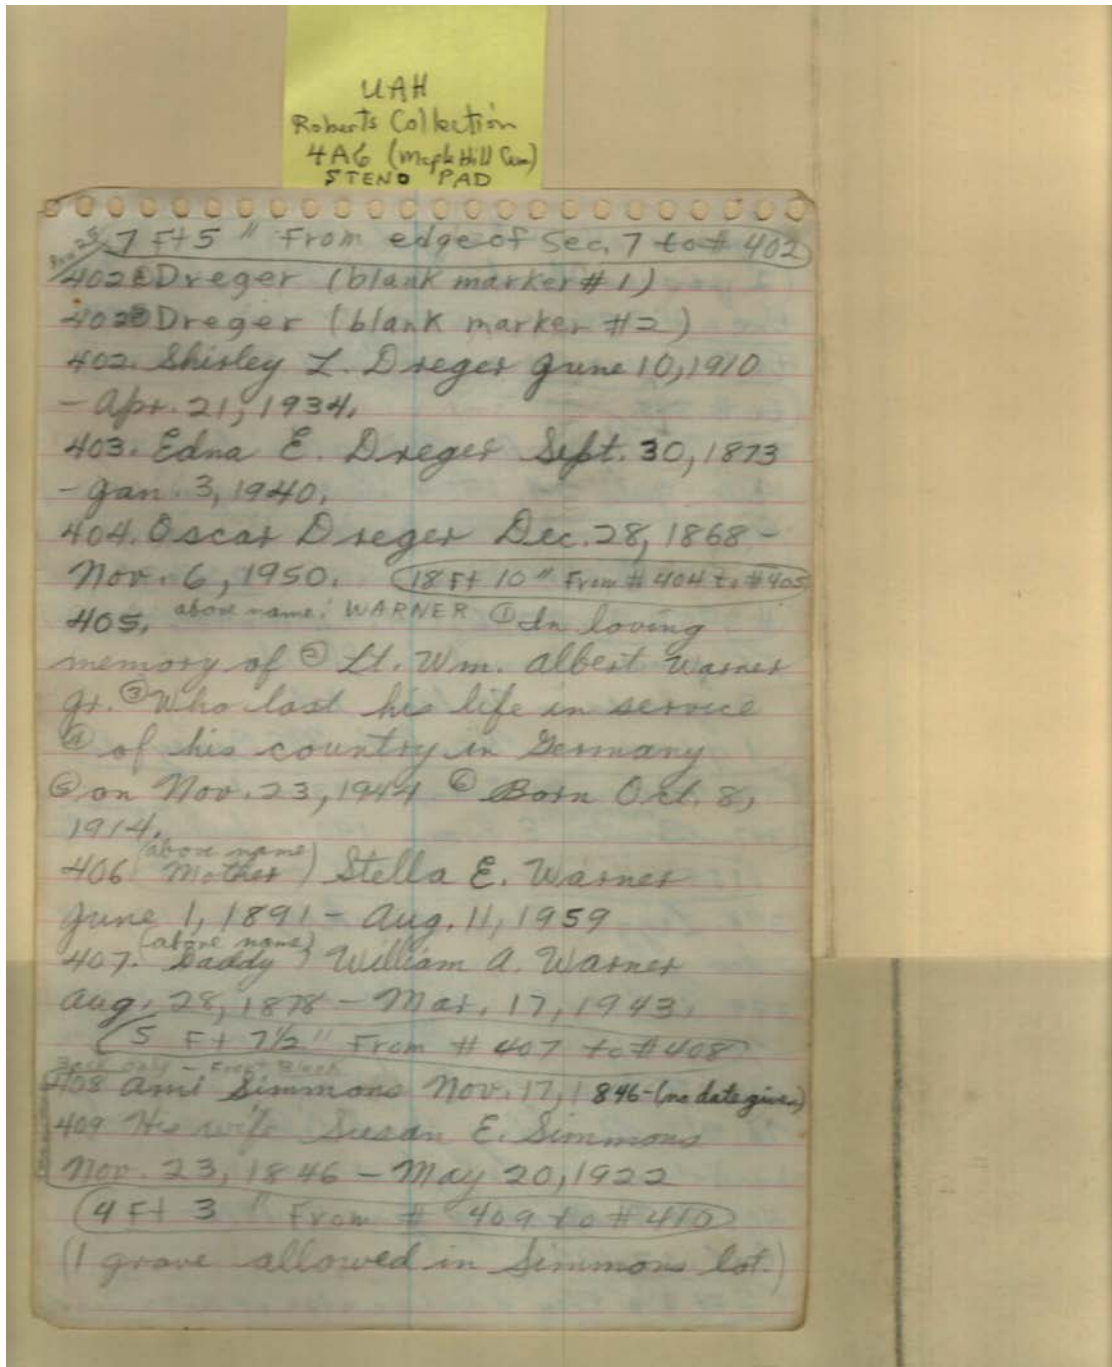 UAH
Roberts Collection
4A6 (Maple Hill Cem)
STENO PAD
7 Ft 5 " From edge of Sec. 7 to # 402
402 Dreger (blank marker #1)
402 Dreger (blank marker #2)
402. Shirley L. Dreger June 10, 1910
- Apr. 21, 1934.
403. Edna E. Dreger Sept. 30, 1873
- Jan. 3, 1940.
404. Oscar Dreger Dec. 28, 1868 -
Nov. 6, 1950. 18 Ft 10 " From # 404 to #405
405. above name: WARNER ① In loving
memory of ② Lt. Wm. Albert Warner
Jr. ③ Who lost his life in service
④ of his country in Germany
⑤ on Nov. 23, 1944 ⑥ Born Oct. 8,
1914.
(above name)
406 Mother) Stella E. Warner
June 1, 1891 - Aug. 11, 1959
(above name)
407. Daddy) William A. Warner
Aug. 28, 1878 - Mar. 17, 1943.
5 Ft 7½" From # 407 to #408
only -
408 Ami Simmons Nov. 17, 1846-(no date given)
409 His wife Susan E. Simmons
Nov. 23, 1846 - May 20, 1922
4 Ft 3 " From # 409 to #410
(1 grave allowed in Simmons lot.)